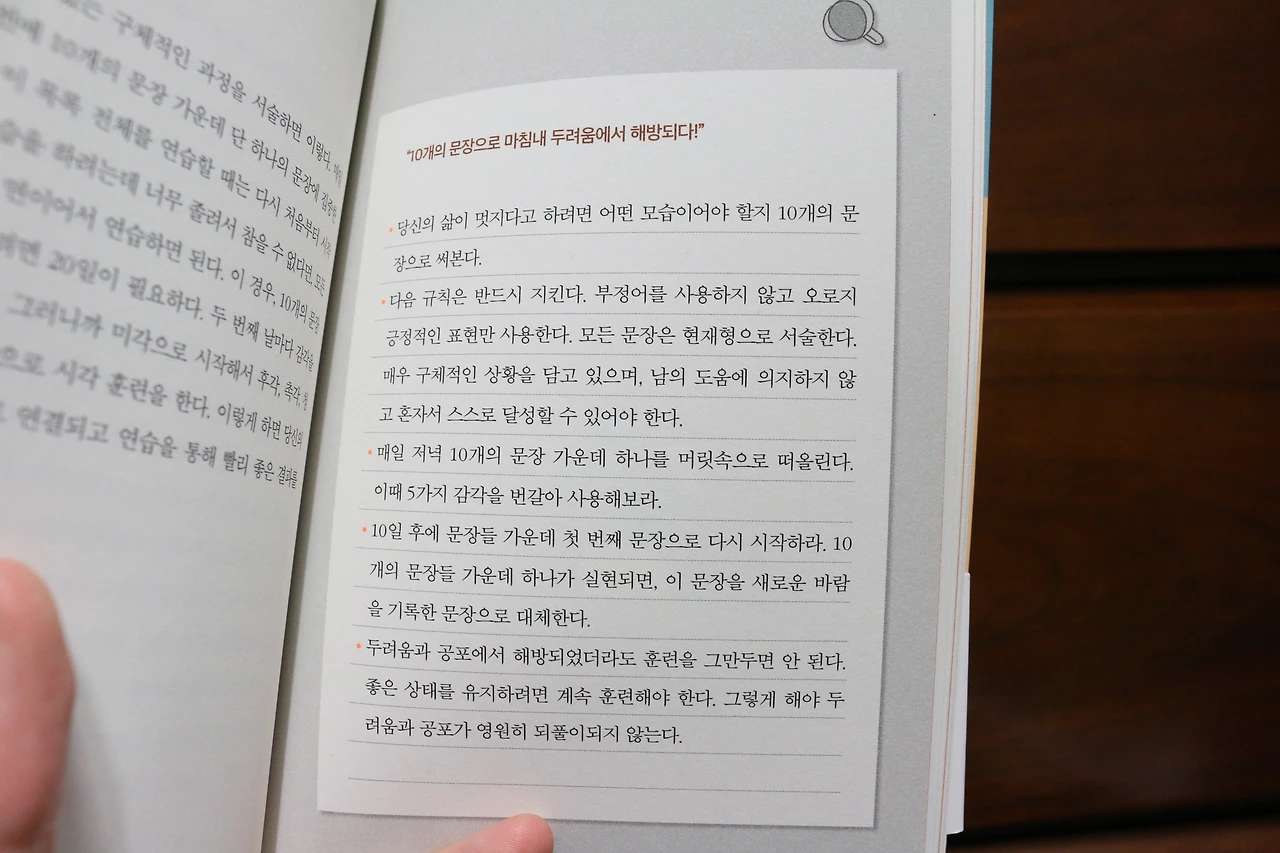 는 구체적인 과정을 서술하면 이렇다. 매일
10개의 문장 가운데 단 하나의 문장에 집중한
이 목록 전체를 연습할 때는 다시 처음부터 시작
습을 하려는데 너무 졸려서 참을 수 없다면, 모든
연이어서 연습하면 된다. 이 경우, 10개의 문장
려면 20일이 필요하다. 두 번째 날마다 감각을
그러니까 미각으로 시작해서 후각, 촉각, 청
으로 시각 훈련을 한다. 이렇게 하면 당신의
연결되고 연습을 통해 빨리 좋은 결과를
"10개의 문장으로 마침내 두려움에서 해방되다!"
• 당신의 삶이 멋지다고 하려면 어떤 모습이어야 할지 10개의 문
장으로 써본다.
• 다음 규칙은 반드시 지킨다. 부정어를 사용하지 않고 오로지
긍정적인 표현만 사용한다. 모든 문장은 현재형으로 서술한다.
매우 구체적인 상황을 담고 있으며, 남의 도움에 의지하지 않
고 혼자서 스스로 달성할 수 있어야 한다.
• 매일 저녁 10개의 문장 가운데 하나를 머릿속으로 떠올린다.
이때 5가지 감각을 번갈아 사용해보라.
• 10일 후에 문장들 가운데 첫 번째 문장으로 다시 시작하라. 10
개의 문장들 가운데 하나가 실현되면, 이 문장을 새로운 바람
을 기록한 문장으로 대체한다.
• 두려움과 공포에서 해방되었더라도 훈련을 그만두면 안 된다.
좋은 상태를 유지하려면 계속 훈련해야 한다. 그렇게 해야 두
려움과 공포가 영원히 되풀이되지 않는다.